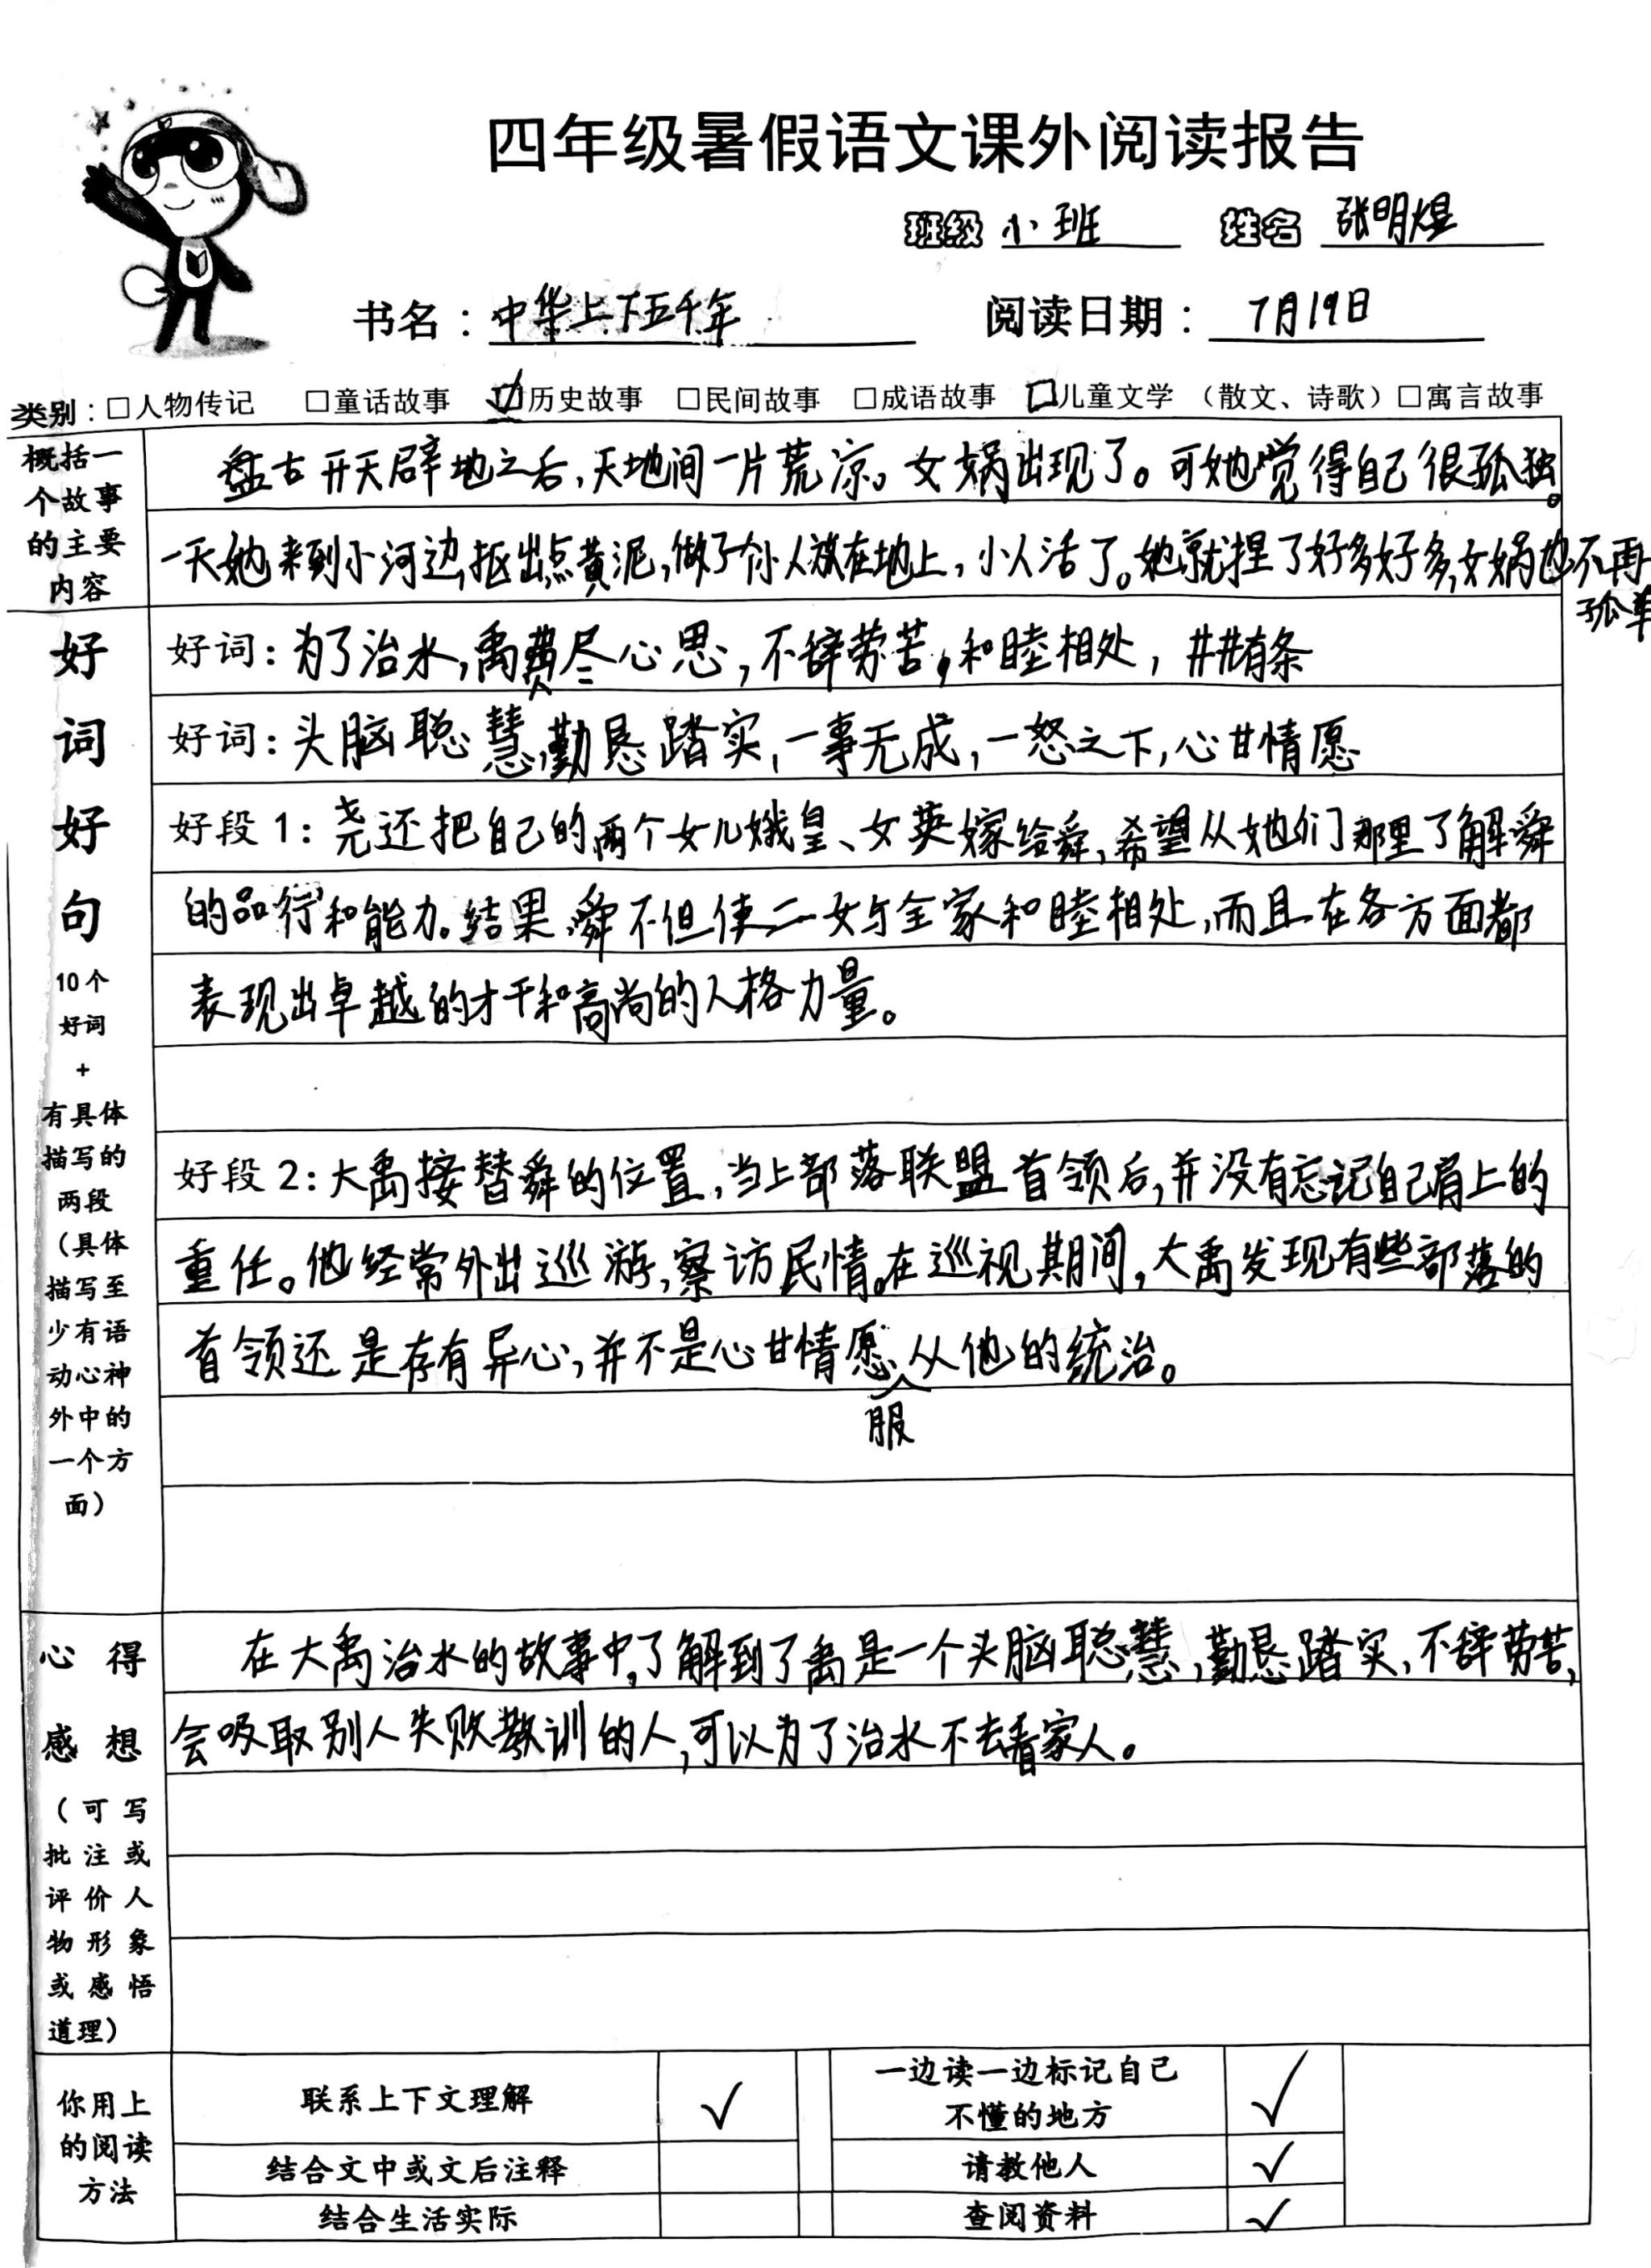 四年级暑假语文课外阅读报告
班级 小班 姓名 张明煜
书名：中华上下五千年 阅读日期：7月19日
类别：□人物传记 □童话故事 ☑历史故事 □民间故事 □成语故事 □儿童文学（散文、诗歌）□寓言故事
概括一个故事的主要内容
盘古开天辟地之后，天地间一片荒凉。女娲出现了。可她觉得自己很孤独。
一天她来到小河边，抠出点黄泥，做了个小人放在地上，小人活了。她就捏了好多好多，女娲也不再
孤单
好词好句
10个好词+有具体描写的两段（具体描写至少有语动心神外中的一个方面）
好词：为了治水，禹费尽心思，不辞劳苦，和睦相处，井井有条
好词：头脑聪慧，勤恳踏实，一事无成，一怒之下，心甘情愿
好段1：尧还把自己的两个女儿娥皇、女英嫁给舜，希望从她们那里了解舜
的品行和能力。结果，舜不但使二女与全家和睦相处，而且在各方面都
表现出卓越的才干和高尚的人格力量。
好段2：大禹接替舜的位置，当上部落联盟首领后，并没有忘记自己肩上的
重任。他经常外出巡游，察访民情。在巡视期间，大禹发现有些部落的
首领还是存有异心，并不是心甘情愿服从他的统治。
心得感想
（可写批注或评价人物形象或感悟道理）
在大禹治水的故事中，了解到了禹是一个头脑聪慧，勤恳踏实，不辞劳苦，
会吸取别人失败教训的人，可以为了治水不去看家人。
你用上的阅读方法
联系上下文理解 ✓ 一边读一边标记自己不懂的地方 ✓
结合文中或文后注释 请教他人 ✓
结合生活实际 查阅资料 ✓